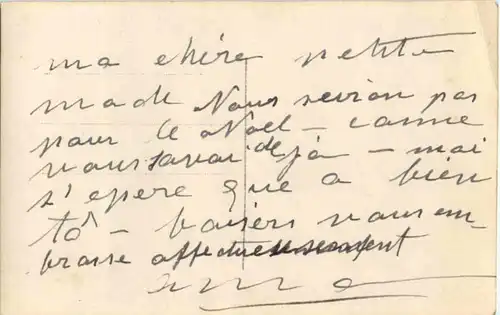 ma chère petite
made Nous sevion pas
pour le Noel - comme
vous savai déjà - mai
s'epere que a bien
tô - baisers vous em-
brasse affectueusement